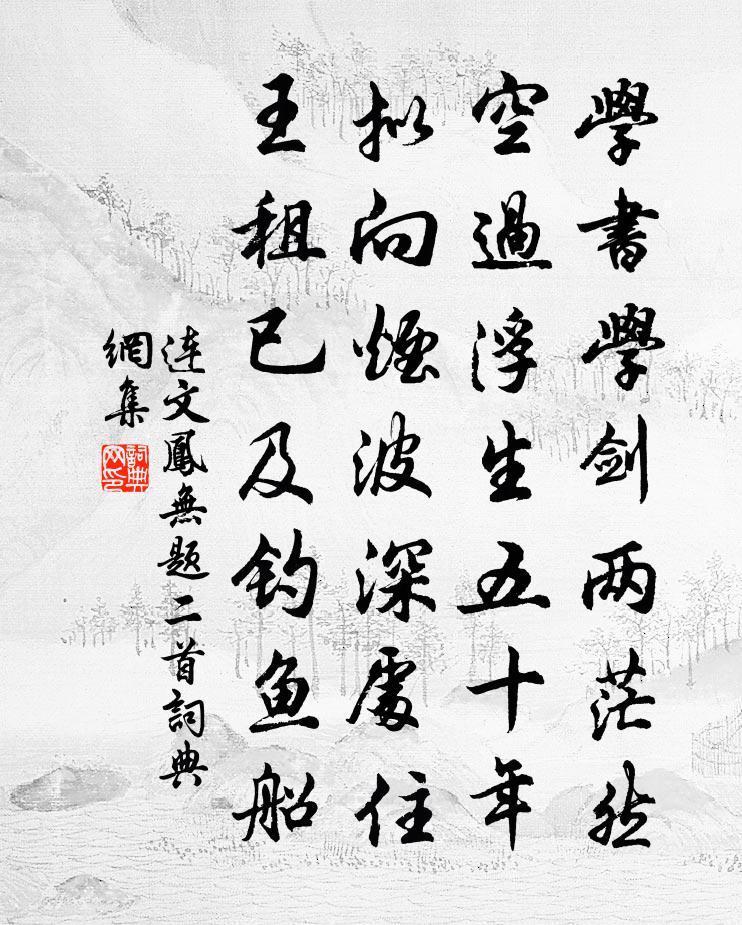 學書學剑两茫然
空過浮生五十年
拟向煙波深處住
王租已及钓鱼船
连文鳳無題二首詞典
網集
詞典
网印